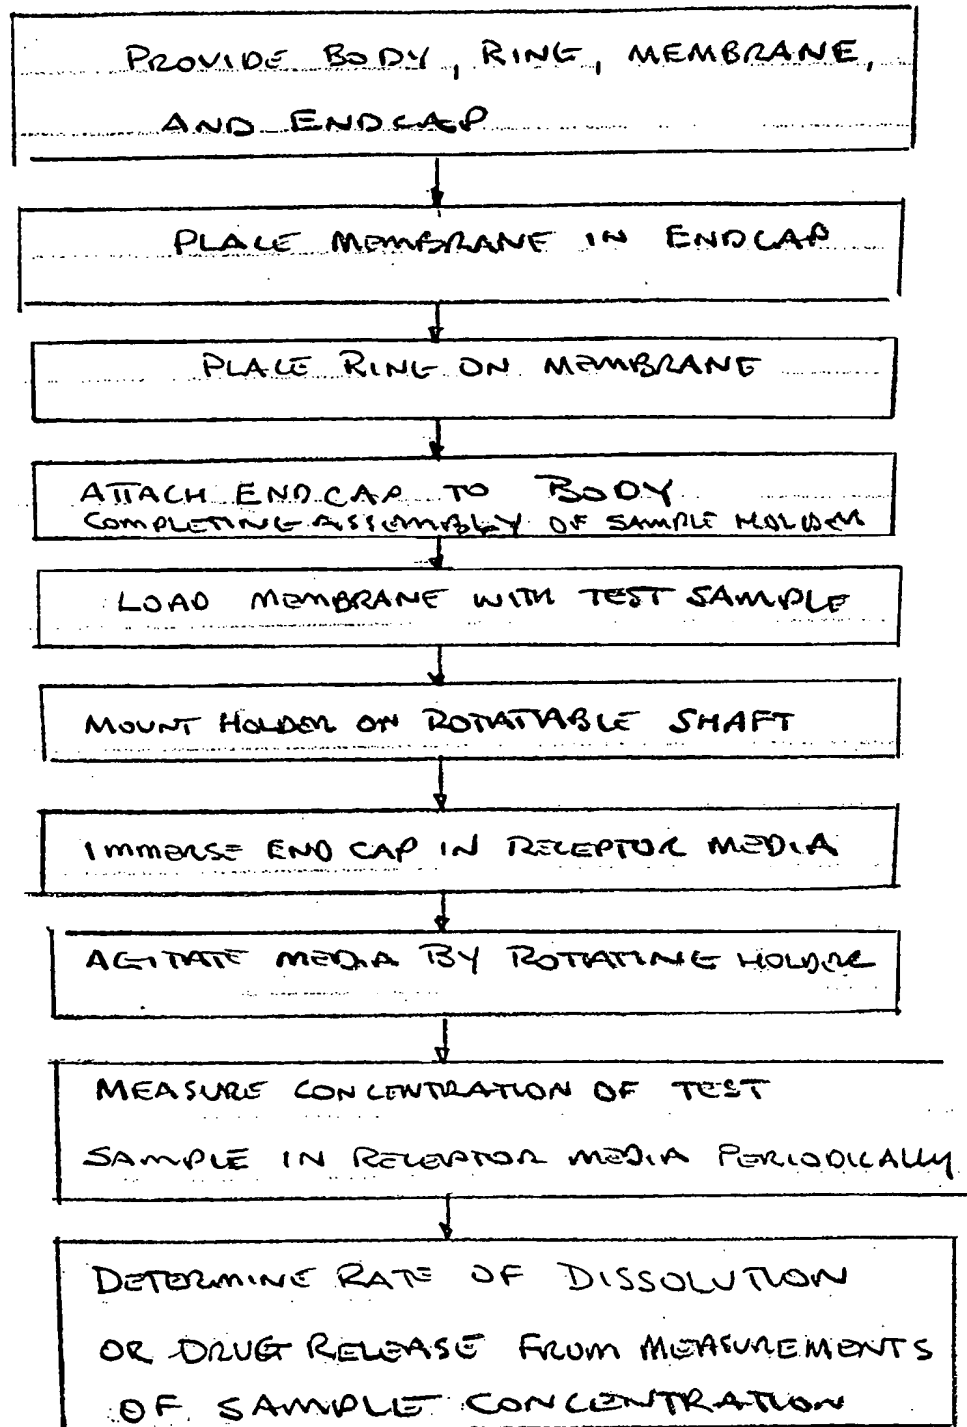 PROVIDE BODY, RING, MEMBRANE,
AND ENDCAP
PLACE MEMBRANE IN ENDCAP
PLACE RING ON MEMBRANE
ATTACH ENDCAP TO BODY
COMPLETING ASSEMBLY OF SAMPLE HOLDER
LOAD MEMBRANE WITH TEST SAMPLE
MOUNT HOLDER ON ROTATABLE SHAFT
IMMERSE END CAP IN RECEPTOR MEDIA
AGITATE MEDIA BY ROTATING HOLDER
MEASURE CONCENTRATION OF TEST
SAMPLE IN RECEPTOR MEDIA PERIODICALLY
DETERMINE RATE OF DISSOLUTION
OR DRUG RELEASE FROM MEASUREMENTS
OF SAMPLE CONCENTRATION